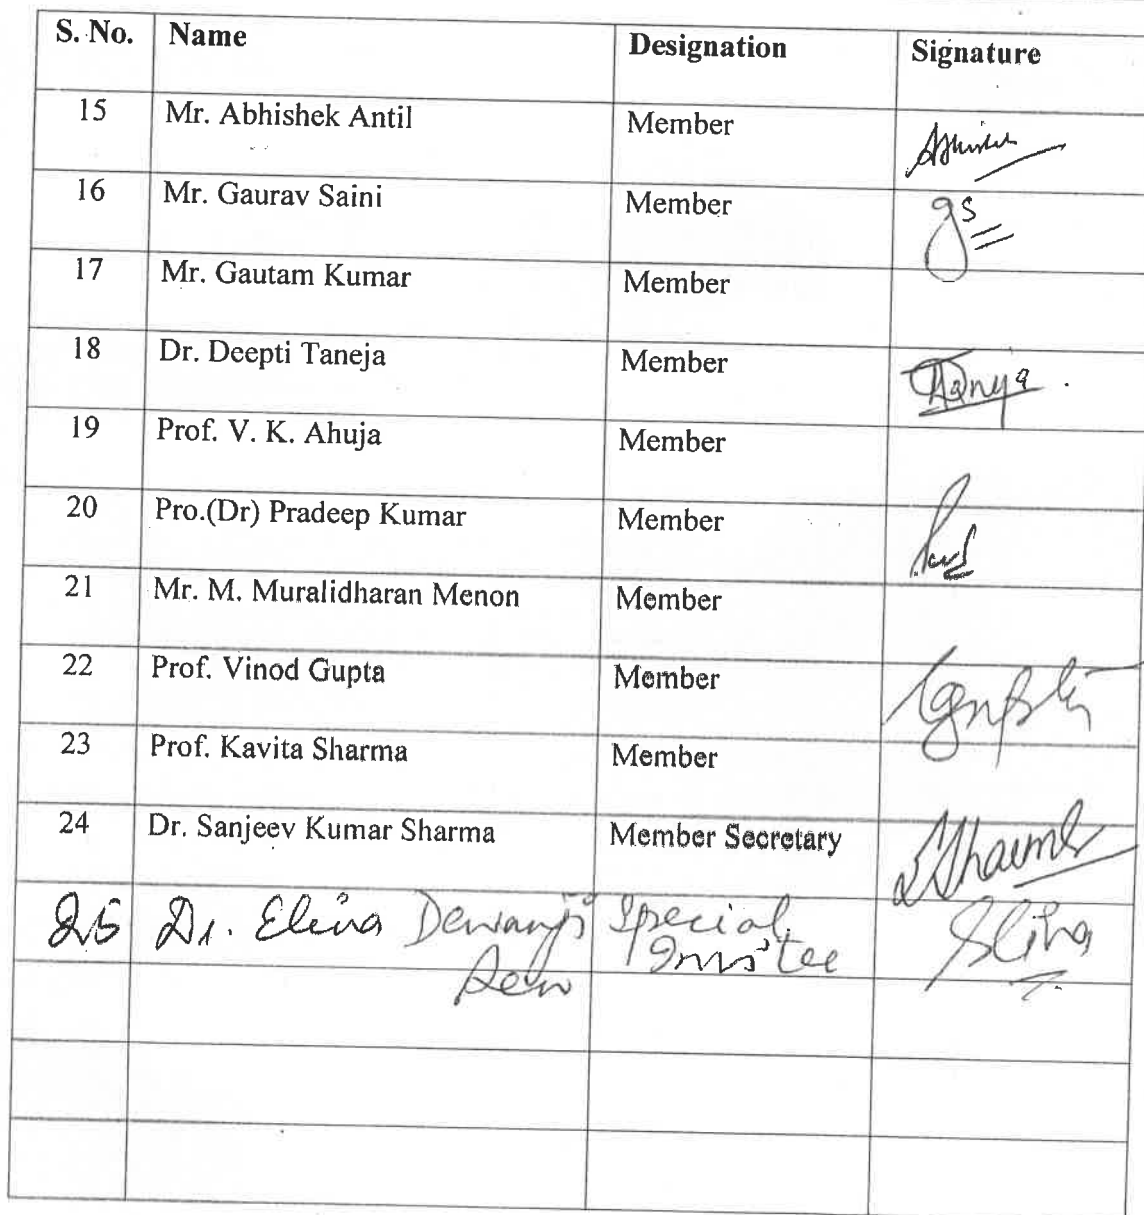 S. No. Name Designation Signature
15 Mr. Abhishek Antil Member Abhishek
16 Mr. Gaurav Saini Member gs
17 Mr. Gautam Kumar Member
18 Dr. Deepti Taneja Member Taneja
19 Prof. V. K. Ahuja Member
20 Pro.(Dr) Pradeep Kumar Member
21 Mr. M. Muralidharan Menon Member
22 Prof. Vinod Gupta Member Gupta
23 Prof. Kavita Sharma Member
24 Dr. Sanjeev Kumar Sharma Member Secretary SSharma
25 Dr. Elina Dewanji Special Elina
Invitee